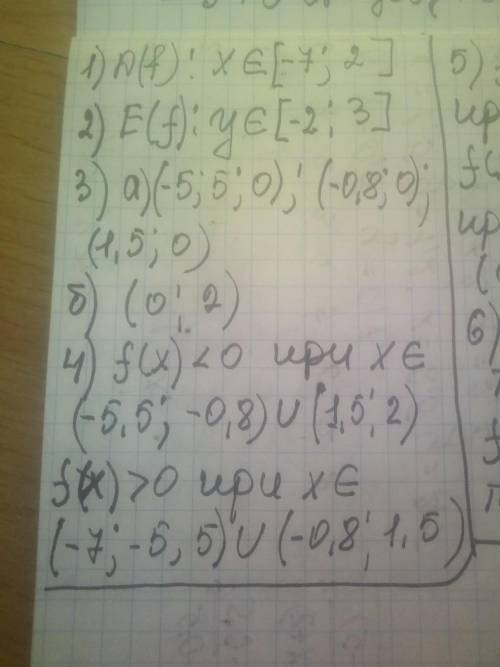 1) D(f): x∈[-7; 2]
2) E(f): y∈[-2; 3]
3) а)(-5; 5; 0); (-0,8; 0);
(1,5; 0)
б) (0; 2)
4) f(x)<0 при x∈
(-5,5; -0,8)∪(1,5; 2)
f(x)>0 при x∈
(-7; -5,5)∪(-0,8; 1,5)
5)
6)